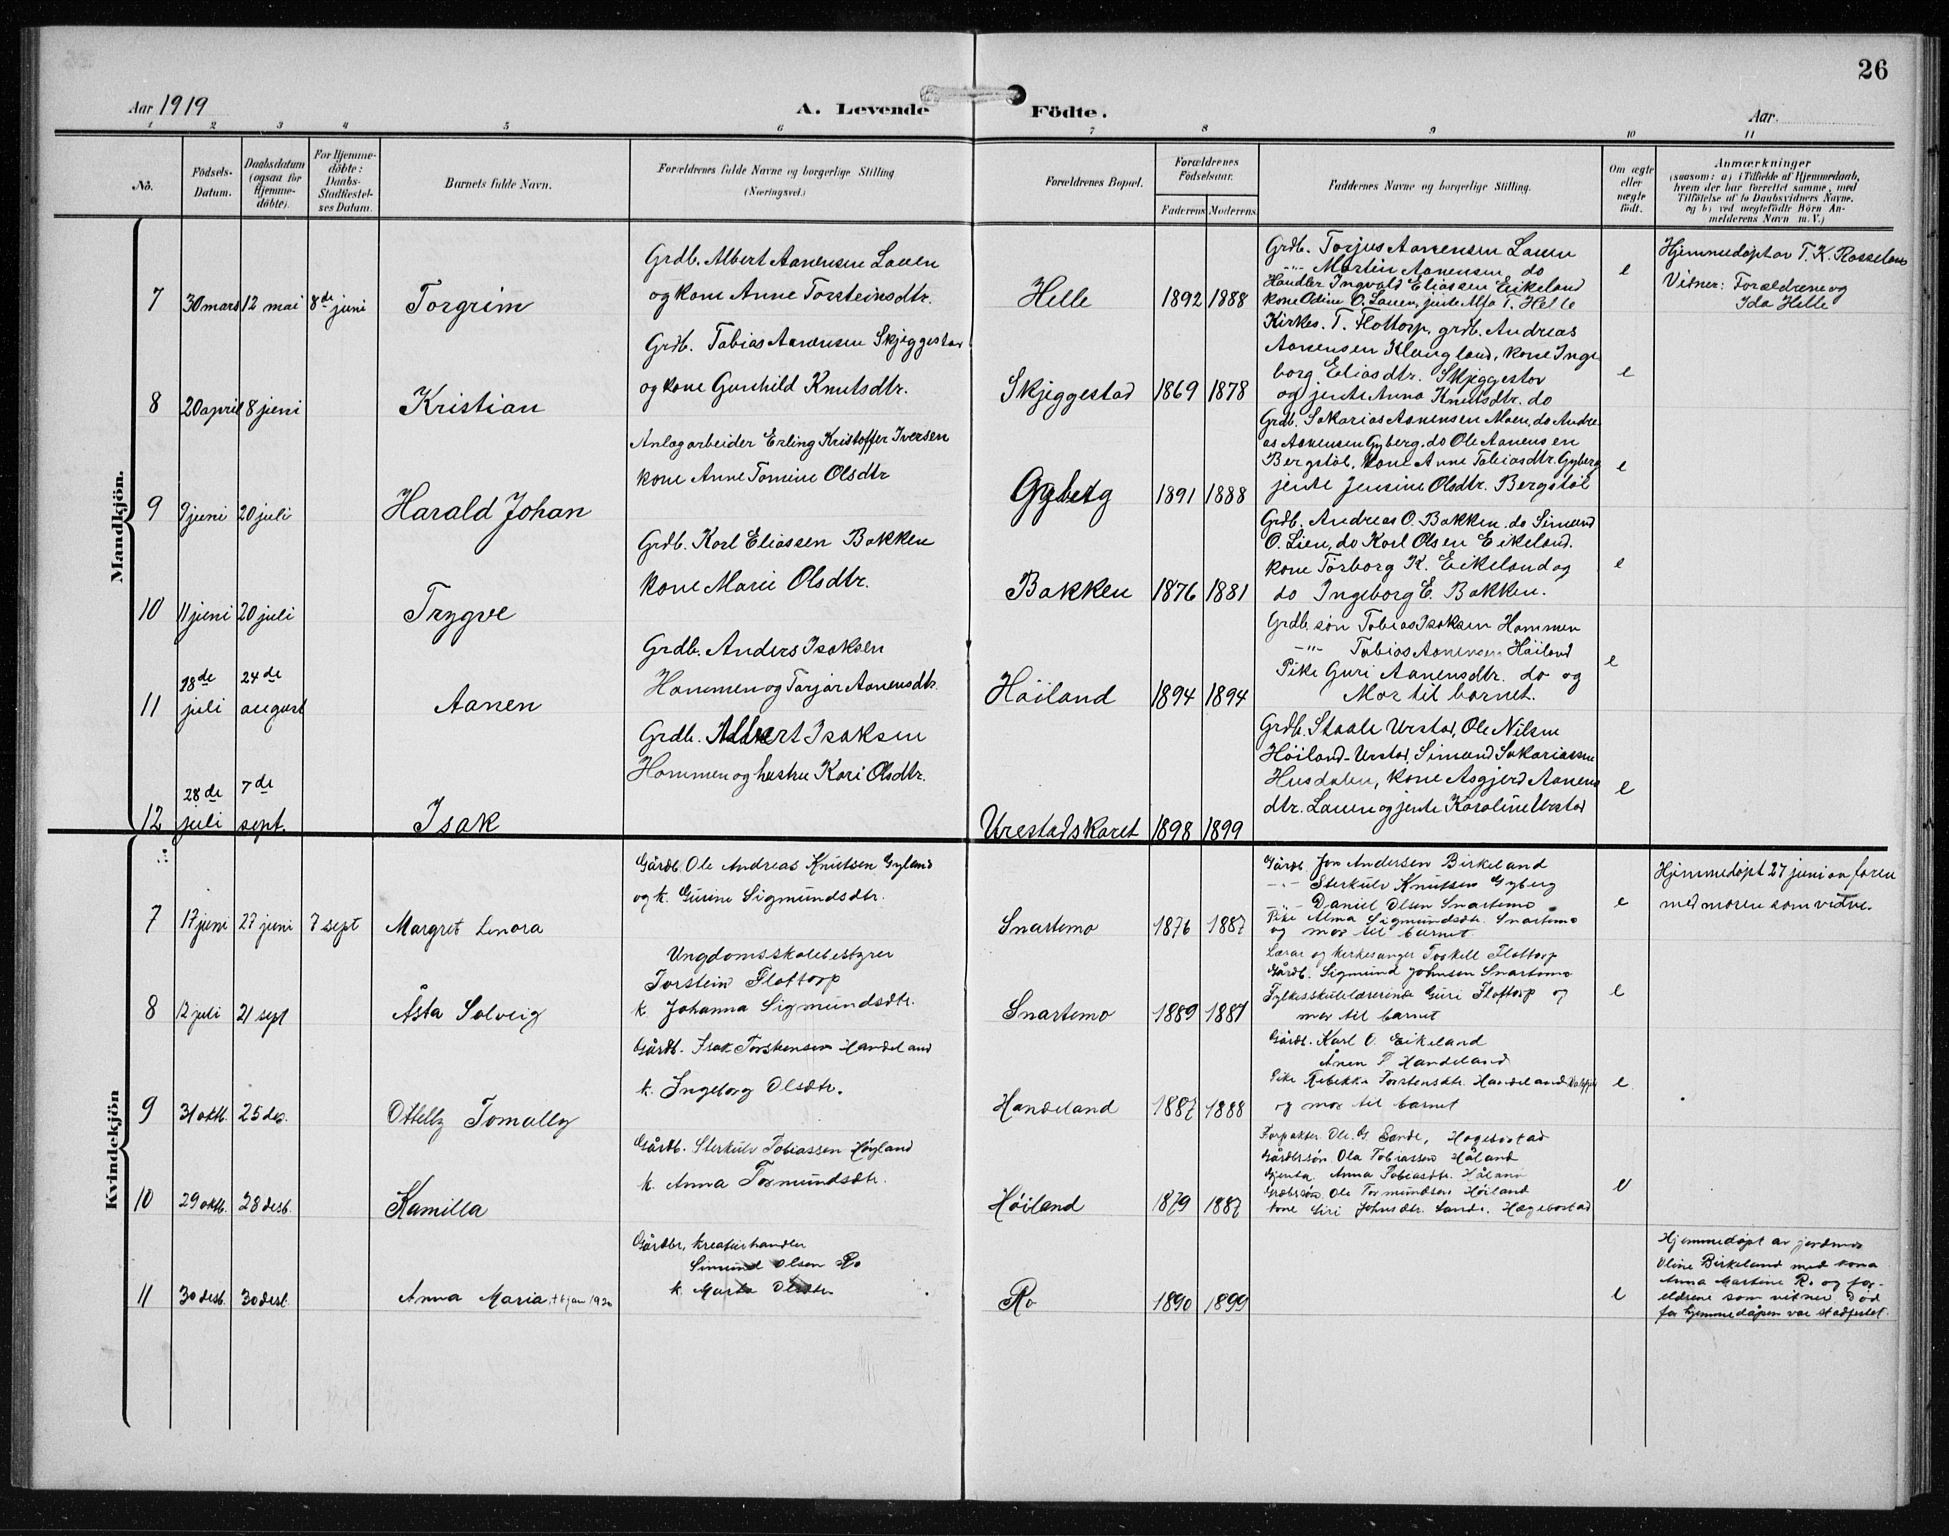 26
Aar 1919
A. Levende Födte.
Aar
1 2 3 4 5 6 7 8 9 10 11
No.
Födsels-Datum.
Daabsdatum (ogsaa for Hjemme-döbte).
For Hjemme-döbte: Daabs-Stadfæstel-ses Datum.
Barnets fulde Navn.
Forældrenes fulde Navne og borgerlige Stilling (Næringsvei.)
Forældrenes Bopæl.
Forældrenes Födselsaar.
Faderens Moderens
Faddernes Navne og borgerlige Stilling.
Om ægte eller uægte födt.
Anmærkninger
(saasom: a) i Tilfælde af Hjemmedaab,
hvem der har forrettet samme, med
Tilföielse af to Daabsvidners Navne.
og b) ved uægtefödte Börn An-
melderens Navn m. V.)
Mandkjön.
7 30 mars 12 mai 8de juni Torgrim
Grdb. Albert Aanensen Lauen
og kone Anne Torsteinsdtr.
Helle 1892 1888
Grdb. Torjus Aanensen Lauen
-"- Martin Aanensen do
Handler Ingvald Eliassen Eikeland
kone Oline O. Lauen, jente Alfa T. Helle
e
Hjemmedøpt av T. K.
Vitner: Forældrene og
Ida Helle
8 20 april 8 juni Kristian
Grdb. Tobias Aanensen Skjeggestad
og kone Gunhild Knutsdtr.
Skjeggestad 1869 1878
Kirkes. T. Flottorp, grdb. Andreas
Aanensen Klungland, kone Inge
borg Eliasdtr. Skjeggestad
og jente Anna Knutsdtr. do
e
9 9 juni 20 juli Harald Johan
Anlagarbeider Erling Kristoffer Iversen
kone Anne Tomine Olsdtr
Gyberg 1891 1888
Grdb. Sakarias Aanensen Moen, do Andre
as Aanensen Gyberg, do Ole Aanensen
Bergstøl, kone Anne Tobiasdtr. Gyberg
jente Jensine Olsdtr. Bergstøl
e
10 11 juni 20 juli Trygve
Grdb. Karl Eliassen Bakken
kone Marie Olsdtr.
Bakken 1876 1881
Grdb. Andreas O. Bakken, do Simund
O. Lien, do Karl Olsen Eikeland.
kone Torborg K. Eikeland og
do Ingeborg E. Bakken.
e
11 18de juli 24de august Aanen
Grdb. Anders Isaksen
Hommen og Torjør Aanensdtr.
Høiland 1894 1894
Grdb. søn Tobias Isaksen Hommen
-"- Tobias Aanensen Høiland
Pike Guri Aanensdtr. do og
Mor til barnet.
e
12 28de juli 7de sept. Isak
Grdb. Albert Isaksen
Hommen og hustru Kari Olsdtr.
Urestadskaret 1898 1899
Grdb. Staale Urstad, Ole Nilsen
Høiland-Urstad, Simund Sakariassen
Husdalen, kone Asgjerd Aanens
dtr. Lauen og jente Karoline Urstad
e
Kvindekjön
7 17 juni 27 juni 7 sept Margret Lenora
Gårdb. Ole Andreas Knutsen Gyland
og k. Gurine Sigmundsdtr.
Snartemo 1876 1887
Gårdb. Jon Andersen Birkeland
-"- Sterkulv Knutsen Gyberg
-"- Daniel Olsen Snartemo
Pike Alma Sigmundsdtr. Snartemo
og mor til barnet.
e
Hjemmedøpt 27 juni av faren
med moren som vidne.
8 12 juli 21 sept Åsta Solveig
Ungdomsskolebestyrer
Torstein Flottorp
k. Johanna Sigmundsdtr.
Snartemo 1889 1881
Lærar og kirkesanger Torkell Flottorp
Gårdb. Sigmund Johnsen Snartemo
Fylkesskulelærerinde Guri Flottorp og
mor til barnet
e
9 31 oktb. 25 des. Ottelly Tomally
Gårdb. Isak Torstensen Handeland
k. Ingeborg Olsdtr.
Handeland 1887 1888
Gårdb. Karl O. Eikeland
Ånen T Handeland
Pike Rebekka Torstensdtr. Handeland
og mor til barnet
e
10 29 oktb. 28 desb. Kamilla
Gårdb. Sterkulv Tobiassen Høyland
k. Anna Tormundsdtr.
Høiland 1879 1887
Forpakter Ole G Sande, Hægebostad
Gårdbrsøn Ola Tobiassen Håland
Gjenta Anna Tobiasdtr. Håland
Grdbrsøn Ole Tormundsen Høiland
kone Siri Johnsdtr. Sande, Hægebostad
e
11 30 desb. 30 desb. Anna Maria † 6 jan 1920
Gårdbr, kreaturhandler
Simund Olsen Ro
k. Marta Olsdtr
Ro 1890 1899
e
Hjemmedøpt av jordmor
Oline Birkeland med kona
Anna Martine Ro og for-
eldrene som vitner. Død
før hjemmedåpen var stadfestet.